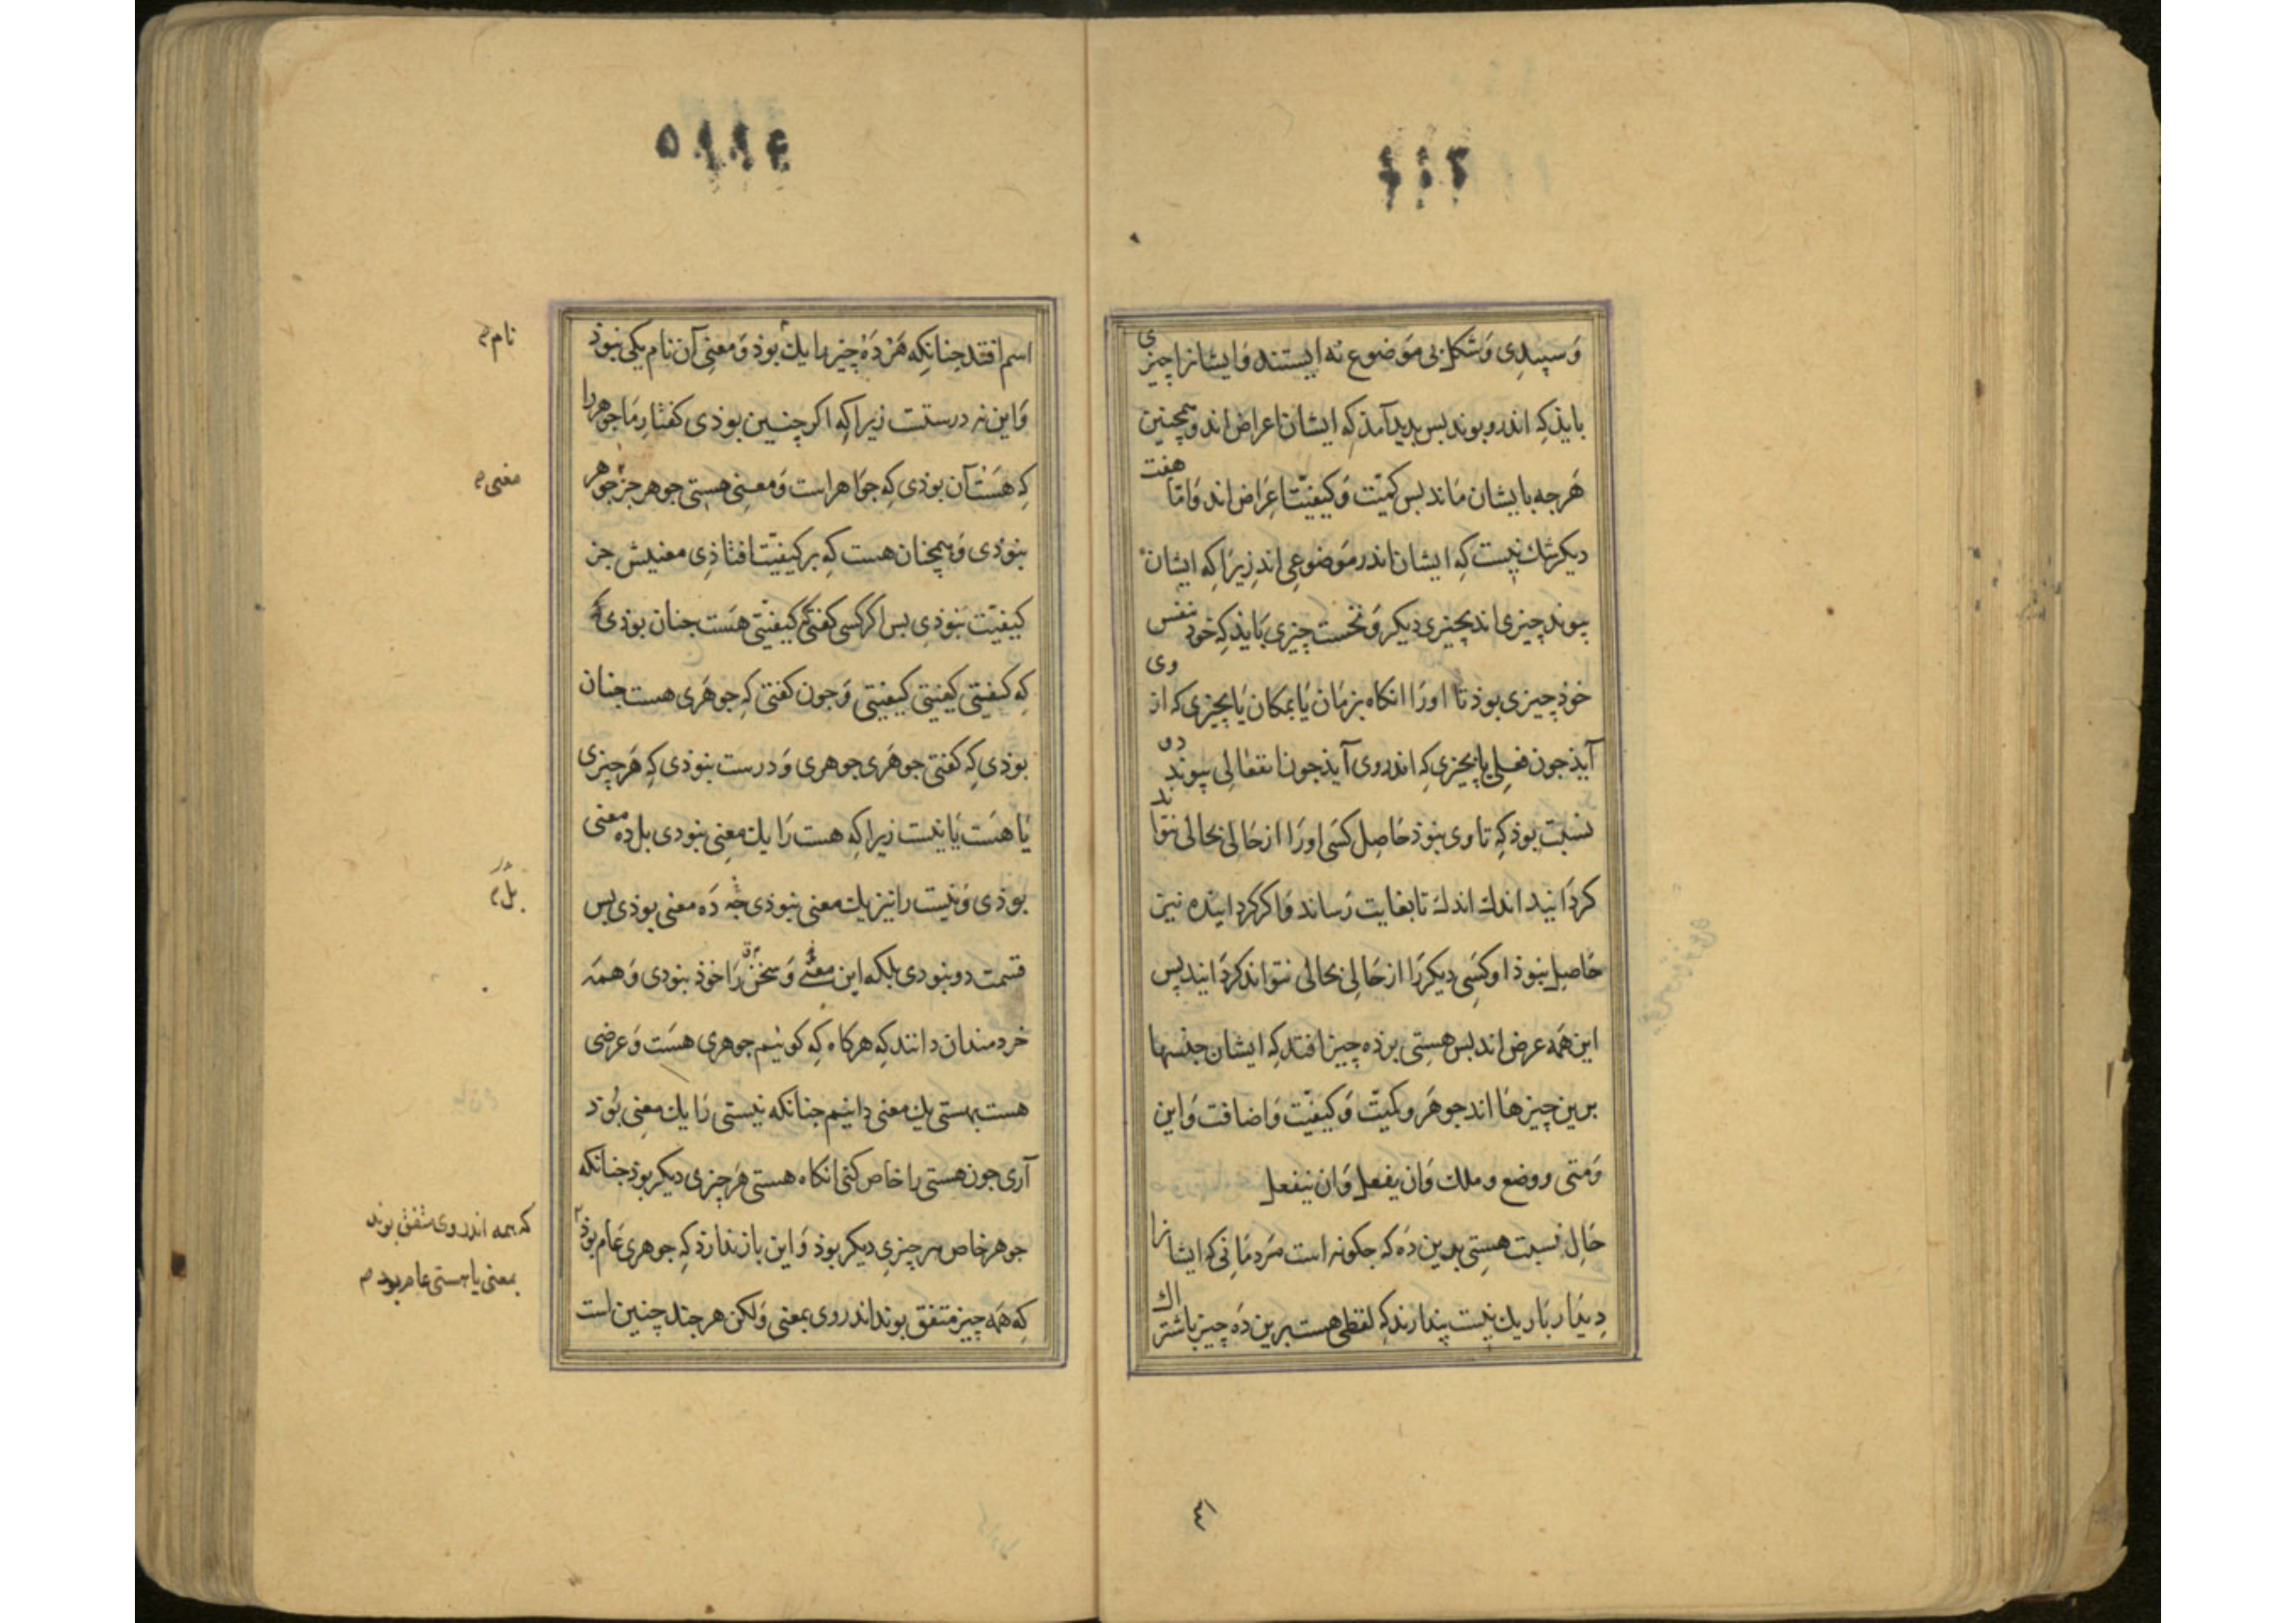 وَ سپیدِی وَ شکل بی مَوضوع نه ایستند وَ ایشانرا چیزی
بایذ کِه اندرو بوند بس بدید آمذ که ایشان اعراض اند و همچنین
هَرجه بایشان مَاند بس کمیّت وَ کیفیّت اعراض اند وَ امّا هفت
دیکر شك نیست کِه ایشان اندر مَوضوعی اند زیرَا کِه ایشان
پیوند چیزی اند بچیزی دیکر وَ نخست چیزی بَایذ کِه خوذ بنفس
خوذ چیزی بوذ تا اورَا انکاه بزمَان یَا بمکان یَا بچیزی که از وی
آیذ جون فعلی یا بچیزی کِه اندروی آیذ جون انفعَالی پیوند دو
نسبت بوذ کِه تا وی نبوذ حَاصِل کَسی اورَا از حَالی بحالی نتواند
کردَانید اندك اندك تا بغایت رَساند وَ اکر کردَاینده نیز
حَاصِل نبوذ او کسَِی دیکر رَا از حَالِی بحالی نتواند کردَانید پس
این هَمه عرض اند بس هستِی بر ذه چیز افتد کِه ایشان جنسها
برین چیز هَا اند جوهَر و کمیّت وَ کیفیّت وَ اضافت وَ این
وَ متی و وضع و ملك وَ ان یفعل وَ ان ینفعل
حَالِ نسبت هستِی بدین دَه که جکونه است مَردمَانی که ایشانرا
دِیدَار بَاریك نیست پندارند کِه لفظی هست برین دَه چیز باشتراك
٤١
اسم افتد جنانکه هَر دَه چیز را یك بوذ وَ معنِی آن نام یکی نبوذ
نام
وَ این نه درستست زیرا کِه اکر چنین بوذی کفتارِ مَا جوهر را
کِه هَست آن بوذی کِه جوَاهر است وَ معنِی هستِی جوهر جز جوهر
معنی
نبوذی وَ همچنان هست کِه بر کیفیّت افتاذِی معنیش جز
کیفیّت نبوذِی بس اکر کسی کفتی کیفیّتی هَست جنان بوذی
کِه کیفیتی کیفیتی کیفیّتی وَ جون کفتی کِه جوهَری هست جنان
بوذی کِه کفتی جوهَری جوهری وَ درست نبوذی کِه هَر چیزی
یَا هَست یَا نیست زیرا کِه هست رَا یك معنِی نبودی بل دَه معنی
بوذی وَ نیست رانیز یك معنی نبوذی جه دَه معنی بوذی بس
بل
قسمت دو نبودی بلکه این معنی وَ سخن رَا خوذ نبودی وَ همَه
خردمندان دانند کِه هرکاه کِه کوئیم جوهری هسَت وَ عرضی
هست بهستی یك معنی دانیم جنانکه نیستی رَا یك معنِی بُوَد
آری جون هستی را خاص کنی انکاه هستی هَر چیزی دیکر بوذ جنانکه
جوهر خاص هر چیزیِ دیکر بوذ وَ این باز ندارد کِه جوهری عَام بوذ
که همه اندروی متفق بوند
بمعنی یا هستی عام بود
کِه هَمه چیز متفق بوند اندروی بمعنی وَ لکن هر جند چنین است